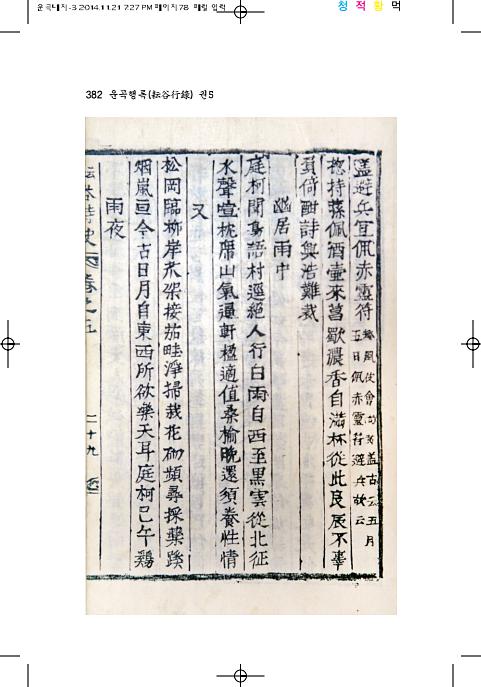 운곡대지-3 2014.11.21 7:27 PM 페이지78
청 적 황 먹
382 운곡행록(耘谷行錄) 권5
盖避兵宜佩赤靈符
五日佩赤靈符避兵故云
惚持蓀佩酒壺來菖歜濃香自滿杯從此良辰不
負倚酣詩興浩難裁
幽居雨中
庭柯聞鳥語村逕絶人行白雨自西至黑雲從北征
水聲喧枕席山氣逼軒楹適値桑榆晩還須養性情
又
松岡臨柳岸 架接茄畦淨掃栽花砌頻尋採藥蹊
烟嵐亘今古日月自東西所欲樂天耳庭柯已午鷄
雨夜
卷之五
二十九